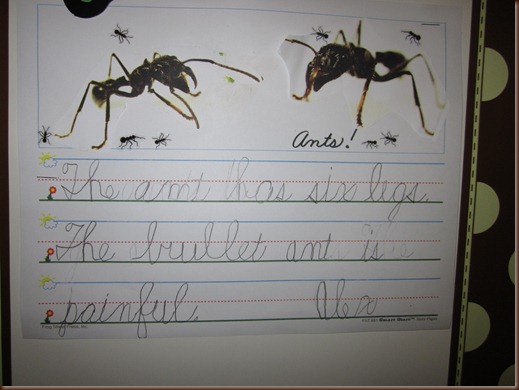 Ants!
The ant has six legs.
The bullet ant is
painful. Alex